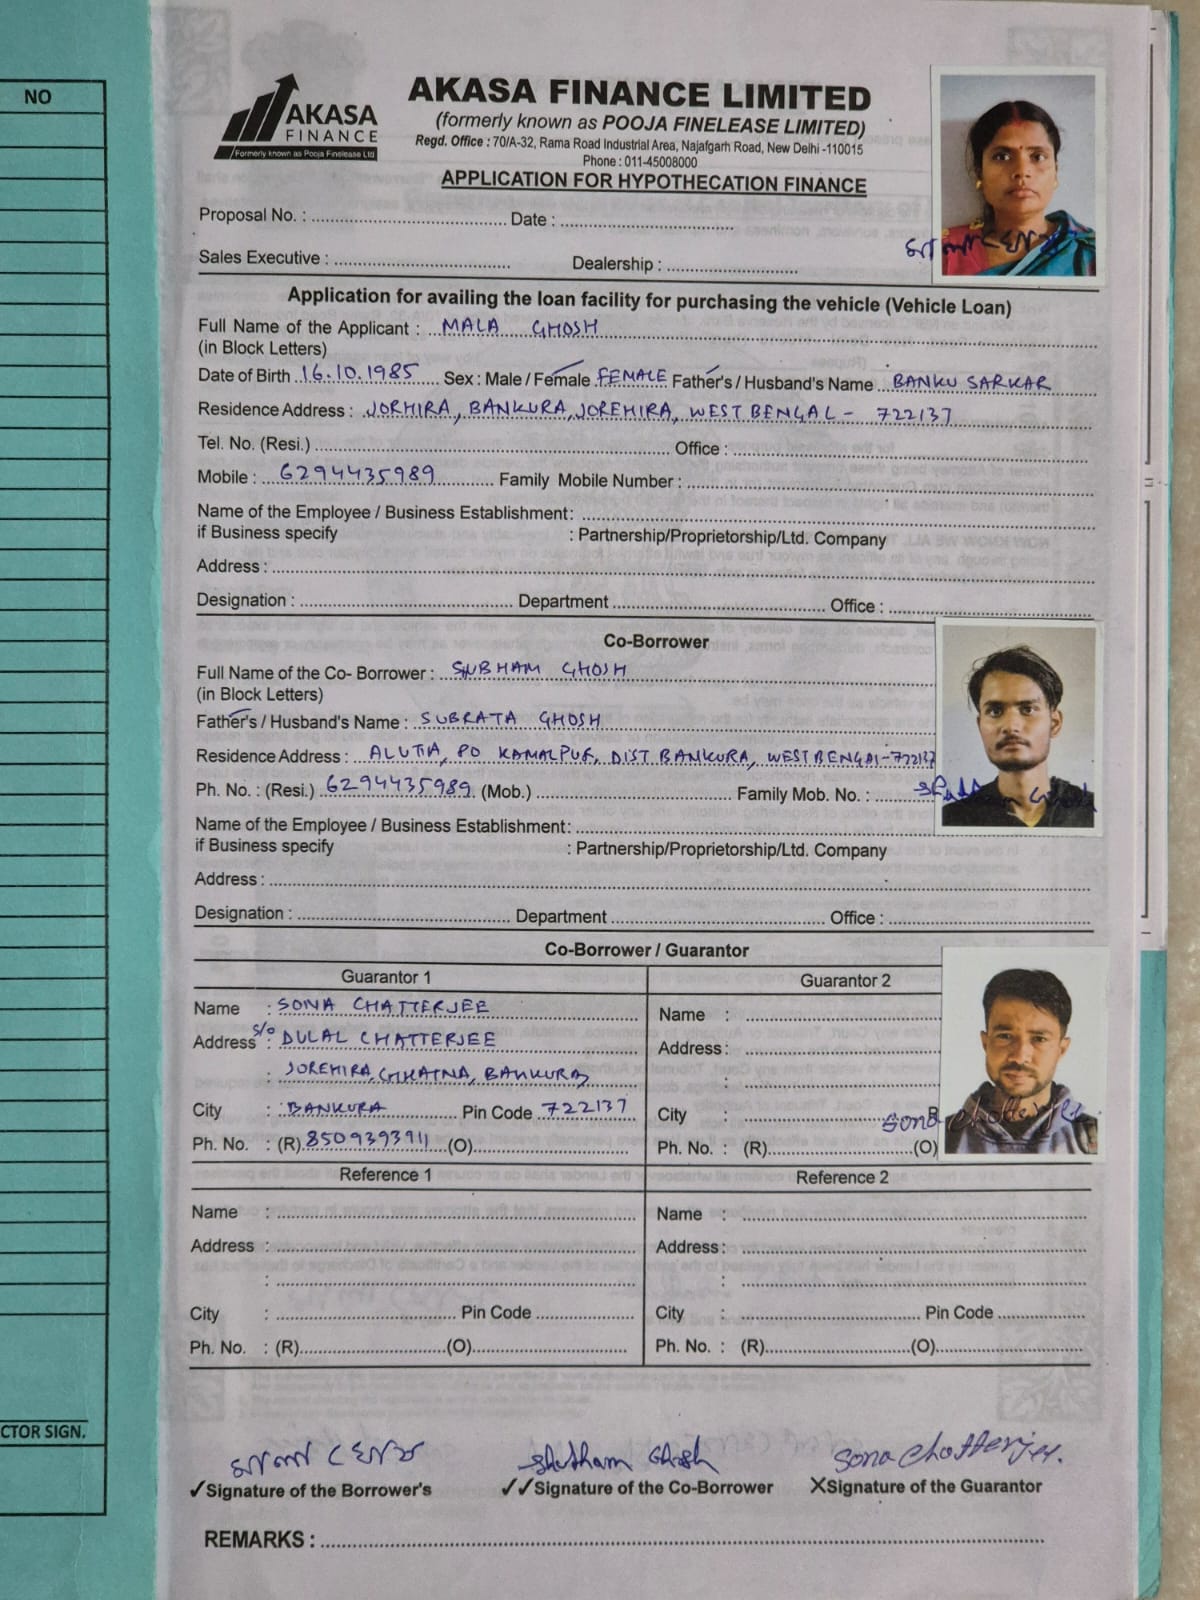 NO
AKASA
FINANCE
Formerly known as Pooja Finelease Ltd
AKASA FINANCE LIMITED
(formerly known as POOJA FINELEASE LIMITED)
Regd. Office : 70/A-32, Rama Road Industrial Area, Najafgarh Road, New Delhi -110015
Phone : 011-45008000
APPLICATION FOR HYPOTHECATION FINANCE
Proposal No. : Date :
Sales Executive : Dealership :
মালা ঘোষ
Application for availing the loan facility for purchasing the vehicle (Vehicle Loan)
Full Name of the Applicant : MALA GHOSH
(in Block Letters)
Date of Birth 16.10.1985 Sex : Male / Female FEMALE Father's / Husband's Name BANKU SARKAR
Residence Address : JORHIRA, BANKURA, JOREHIRA, WEST BENGAL - 722137
Tel. No. (Resi.) Office :
Mobile : 6294435989 Family Mobile Number :
Name of the Employee / Business Establishment:
if Business specify : Partnership/Proprietorship/Ltd. Company
Address :
Designation : Department Office :
Co-Borrower
Full Name of the Co- Borrower : SUBHAM GHOSH
(in Block Letters)
Father's / Husband's Name : SUBRATA GHOSH
Residence Address : ALUTIA, PO KAMALPUR, DIST BANKURA, WEST BENGAL-722137
Ph. No. : (Resi.) 6294435989 (Mob.) Family Mob. No. :
Shubham Ghosh
Name of the Employee / Business Establishment:
if Business specify : Partnership/Proprietorship/Ltd. Company
Address :
Designation : Department Office :
Co-Borrower / Guarantor
Guarantor 1 Guarantor 2
Name : SONA CHATTERJEE Name :
Address S/O : DULAL CHATTERJEE Address :
: JOREHIRA, CHHATNA, BANKURA :
City : BANKURA Pin Code 722137 City : P
Sona Chatterjee
Ph. No. : (R) 8509393911 (O) Ph. No. : (R) (O)
Reference 1 Reference 2
Name : Name :
Address : Address :
: :
City : Pin Code City : Pin Code
Ph. No. : (R) (O) Ph. No. : (R) (O)
মালা ঘোষ Shubham Ghosh Sona Chatterjee.
✓Signature of the Borrower's ✓✓Signature of the Co-Borrower XSignature of the Guarantor
CTOR SIGN.
REMARKS :